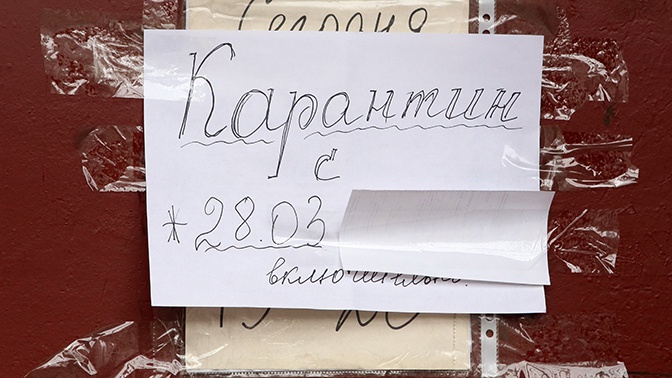 Сегодня
Карантин
с
* 28.03
включительно.